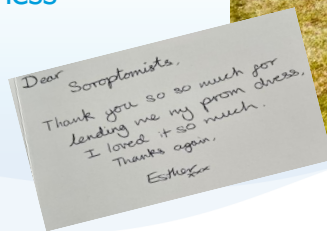 less
Dear
Soroptomists,
Thank you so so much for
lending me my prom dress,
I loved it so much.
Thanks again,
Esther xxx